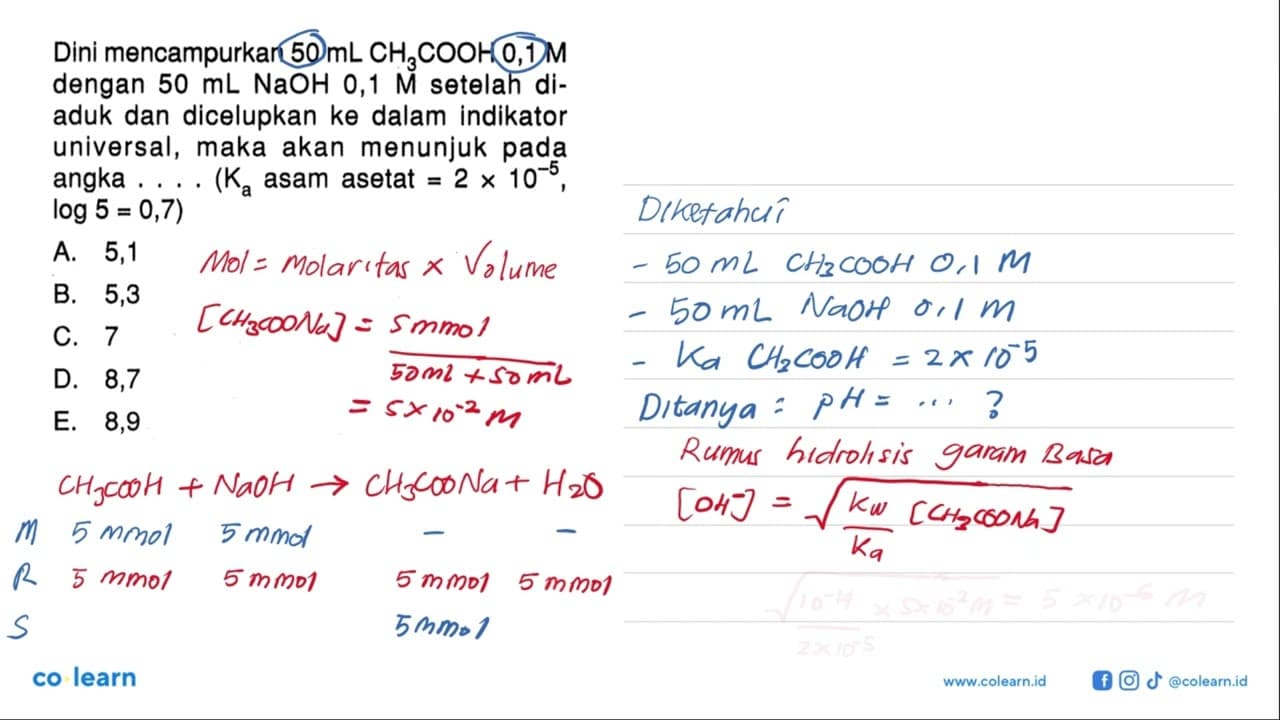 Dini mencampurkan 50 mL CH₃COOH 0,1 M
dengan 50 mL NaOH 0,1 M setelah di-
aduk dan dicelupkan ke dalam indikator
universal, maka akan menunjuk pada
angka . . . . (Kₐ asam asetat = 2 × 10⁻⁵,
log 5 = 0,7)
A. 5,1
B. 5,3
C. 7
D. 8,7
E. 8,9
Mol = molaritas × Volume
[CH₃COONa] = 5 mmol
50 ml + 50 mL
= 5 × 10⁻² M
CH₃COOH + NaOH → CH₃COONa + H₂O
M 5 mmol 5 mmol - -
R 5 mmol 5 mmol 5 mmol 5 mmol
S 5 mmol
Diketahui
- 50 mL CH₃COOH 0,1 M
- 50 mL NaOH 0,1 M
- Ka CH₃COOH = 2 × 10⁻⁵
Ditanya : pH = ... ?
Rumus hidrolisis garam Basa
[OH⁻] = √ Kw [CH₃COONa]
Ka
√ 10⁻¹⁴ × 5×10⁻² M = 5 × 10⁻⁶ M
2×10⁻⁵
co learn
www.colearn.id @colearn.id